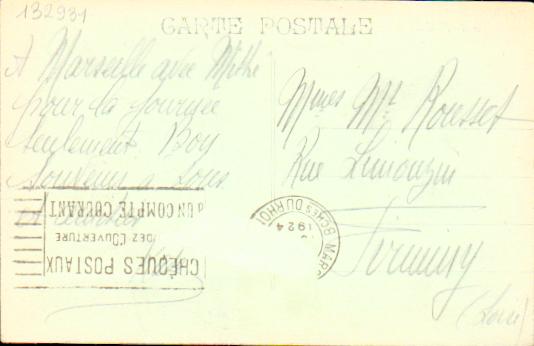 132931
CARTE POSTALE
A Marseille avec
pour la journée
seulement Bon
Souvenir à tous
CHÈQUES POSTAUX
DEZ L'OUVERTURE
D'UN COMPTE COURANT
MARS
BCHES DU RHONE
1924
Mmes Mt Rousset
Rue Limouzin
Firminy
(Loire)